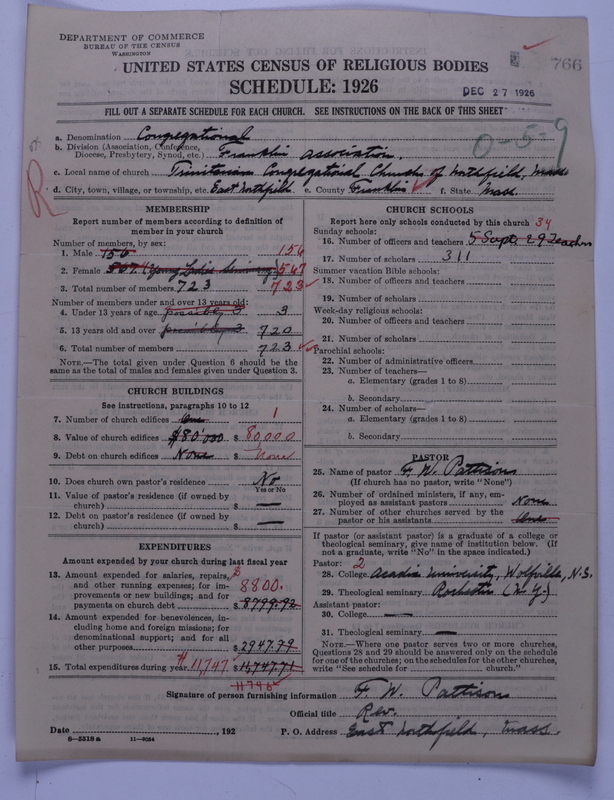 DEPARTMENT OF COMMERCE
BUREAU OF THE CENSUS
WASHINGTON
766
UNITED STATES CENSUS OF RELIGIOUS BODIES
SCHEDULE: 1926
DEC 27 1926
FILL OUT A SEPARATE SCHEDULE FOR EACH CHURCH. SEE INSTRUCTIONS ON THE BACK OF THIS SHEET
0-5-9
R
a. Denomination Congregational
b. Division (Association, Conference, Diocese, Presbytery, Synod, etc.) Franklin Association.
c. Local name of church Trinitarian Congregational Church of Northfield, Mass
d. City, town, village, or township, etc. East Northfield e. County Franklin f. State Mass.
MEMBERSHIP
Report number of members according to definition of
member in your church
Number of members, by sex:
1. Male 156 156
2. Female 567 (Young Ladies Seminary) 567
3. Total number of members 723 723
Number of members under and over 13 years old:
4. Under 13 years of age possibly 3 3
5. 13 years old and over possibly 720
6. Total number of members 723
NOTE.—The total given under Question 6 should be
same as the total of males and females given under Question 3.
CHURCH BUILDINGS
See instructions, paragraphs 10 to 12
7. Number of church edifices One 1
8. Value of church edifices $80,000 $ 80,000
9. Debt on church edifices None $ none
10. Does church own pastor's residence No
Yes or No
11. Value of pastor's residence (if owned by
church) $ —
12. Debt on pastor's residence (if owned by
church) $ —
EXPENDITURES
Amount expended by your church during last fiscal year
13. Amount expended for salaries, repairs,
and other running expenses; for im-
provements or new buildings; and for
payments on church debt $ 8799.92 $ 8800.
14. Amount expended for benevolences, in-
cluding home and foreign missions; for
denominational support; and for all
other purposes $ 2947.79
15. Total expenditures during year $ 11,747 $ 11,747.71
11748
CHURCH SCHOOLS
Report here only schools conducted by this church
Sunday schools: 34
16. Number of officers and teachers 5 Supts 29 Teachers
17. Number of scholars 311
Summer vacation Bible schools:
18. Number of officers and teachers
19. Number of scholars
Week-day religious schools:
20. Number of officers and teachers
21. Number of scholars
Parochial schools:
22. Number of administrative officers
23. Number of teachers—
a. Elementary (grades 1 to 8)
b. Secondary
24. Number of scholars—
a. Elementary (grades 1 to 8)
b. Secondary
PASTOR
25. Name of pastor F. W. Pattison
(If church has no pastor, write "None")
26. Number of ordained ministers, if any, em-
ployed as assistant pastors None
27. Number of other churches served by the
pastor or his assistants
If pastor (or assistant pastor) is a graduate of a college or
theological seminary, give name of institution below. (If
not a graduate, write "No" in the space indicated.)
Pastor: 2
28. College Acadia University, Wolfville, N.S.
29. Theological seminary Rochester (N.Y.)
Assistant pastor:
30. College —
31. Theological seminary —
NOTE.—Where one pastor serves two or more churches,
Questions 28 and 29 should be answered only on the schedule
for one of the churches; on the schedules for the other churches,
write "See schedule for church."
Signature of person furnishing information F. W. Pattison
Official title Rev.
Date , 192 P. O. Address East Northfield, Mass.
8—5518a 11—9264